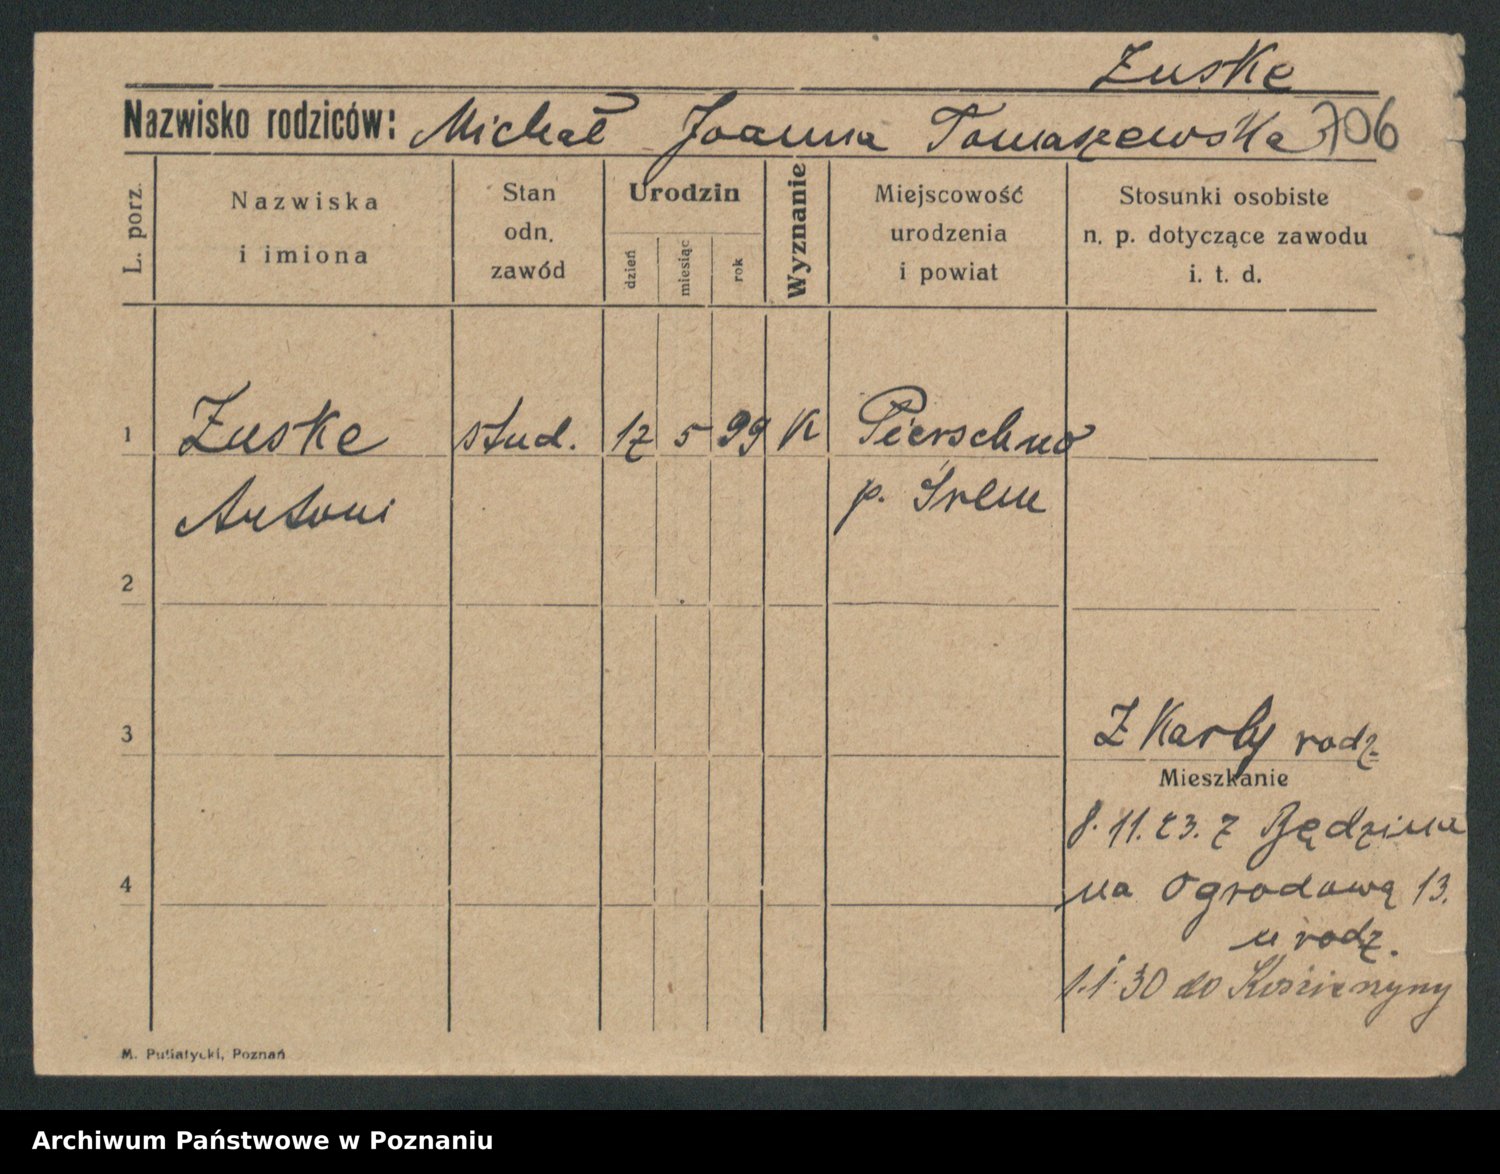 Zuske
Nazwisko rodziców: Michał Joanna Tomaszewska 706
L. porz.
Nazwiska
i imiona
Stan
odn.
zawód
Urodzin
dzień
miesiąc
rok
Wyznanie
Miejscowość
urodzenia
i powiat
Stosunki osobiste
n. p. dotyczące zawodu
i. t. d.
1 Zuske stud. 12 5 99 K Pierschno
Antoni p. Śrem
2
3 Z Karty rodz.
Mieszkanie
8. 11. 23. z Będzina
4 na Ogrodową 13.
u rodz.
1.1.30 do
M. Putiatycki, Poznań
Archiwum Państwowe w Poznaniu